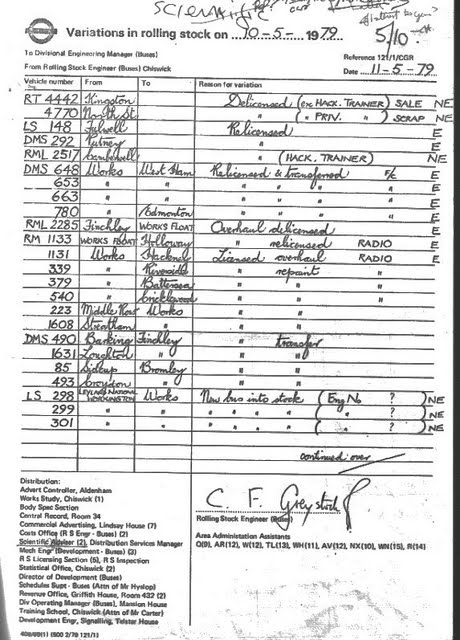 SCIENTIFIC
5/10
Variations in rolling stock on 10-5- 1979
To Divisional Engineering Manager (Buses)
Reference 121/1/CGR
From Rolling Stock Engineer (Buses) Chiswick
Date 11-5-79
Vehicle number From To Reason for variation
RT 4442 Kingston Delicensed (ex HACK. TRAINER) SALE NE
4770 North St. " ( " PRIV. " ) SCRAP NE
LS 148 Fulwell Relicensed E
DMS 292 Putney " E
RML 2517 Camberwell " (HACK. TRAINER) NE
DMS 648 Works West Ham Relicensed & transferred F/C E
653 " " " " " " E
663 " " " " " " E
780 " Edmonton " " " " E
RML 2285 Finchley WORKS FLOAT Overhaul delicensed E
RM 1133 WORKS FLOAT Holloway " relicensed RADIO E
1131 Works Hackney Licensed overhaul RADIO E
339 " Riverside " repaint "
379 " Battersea " " "
540 " Cricklewood " " "
223 Middle Row Works " " "
1608 Streatham " " " "
DMS 490 Barking Finchley " transfer
1631 Loughton " " "
85 Sidcup Bromley " "
493 Croydon " " "
LS 298 LEYLAND NATIONAL WORKINGTON Works New bus into stock (Eng No ? ) NE
299 " " " " " " ( " ? ) NE
301 " " " " " " ( " ? ) NE
continued over
Distribution:
Advert Controller, Aldenham
Works Study, Chiswick (1)
Body Spec Section
Central Record, Room 34
Commercial Advertising, Lindsay House (7)
Costs Office (R S Engr - Buses) (2)
Scientific Adviser (2), Distribution Services Manager
Mech Engr (Development - Buses) (3)
R S Licensing Section (5), R S Inspection
Statistical Office, Chiswick (2)
Director of Development (Buses)
Schedules Supt - Buses (Attn of Mr Hyslop)
Revenue Office, Griffith House, Room 432 (2)
Div Operating Manager (Buses), Mansion House
Training School, Chiswick (Attn of Mr Carter)
Development Engr, Signalling, Telstar House
C. F. Greystock
Rolling Stock Engineer (Buses)
Area Administation Assistants
O(9), AR(12), W(12), TL(13), WH(11), AV(12), NX(10), WN(15), R(14)
408/93 (1) (500 2/79 121/1)